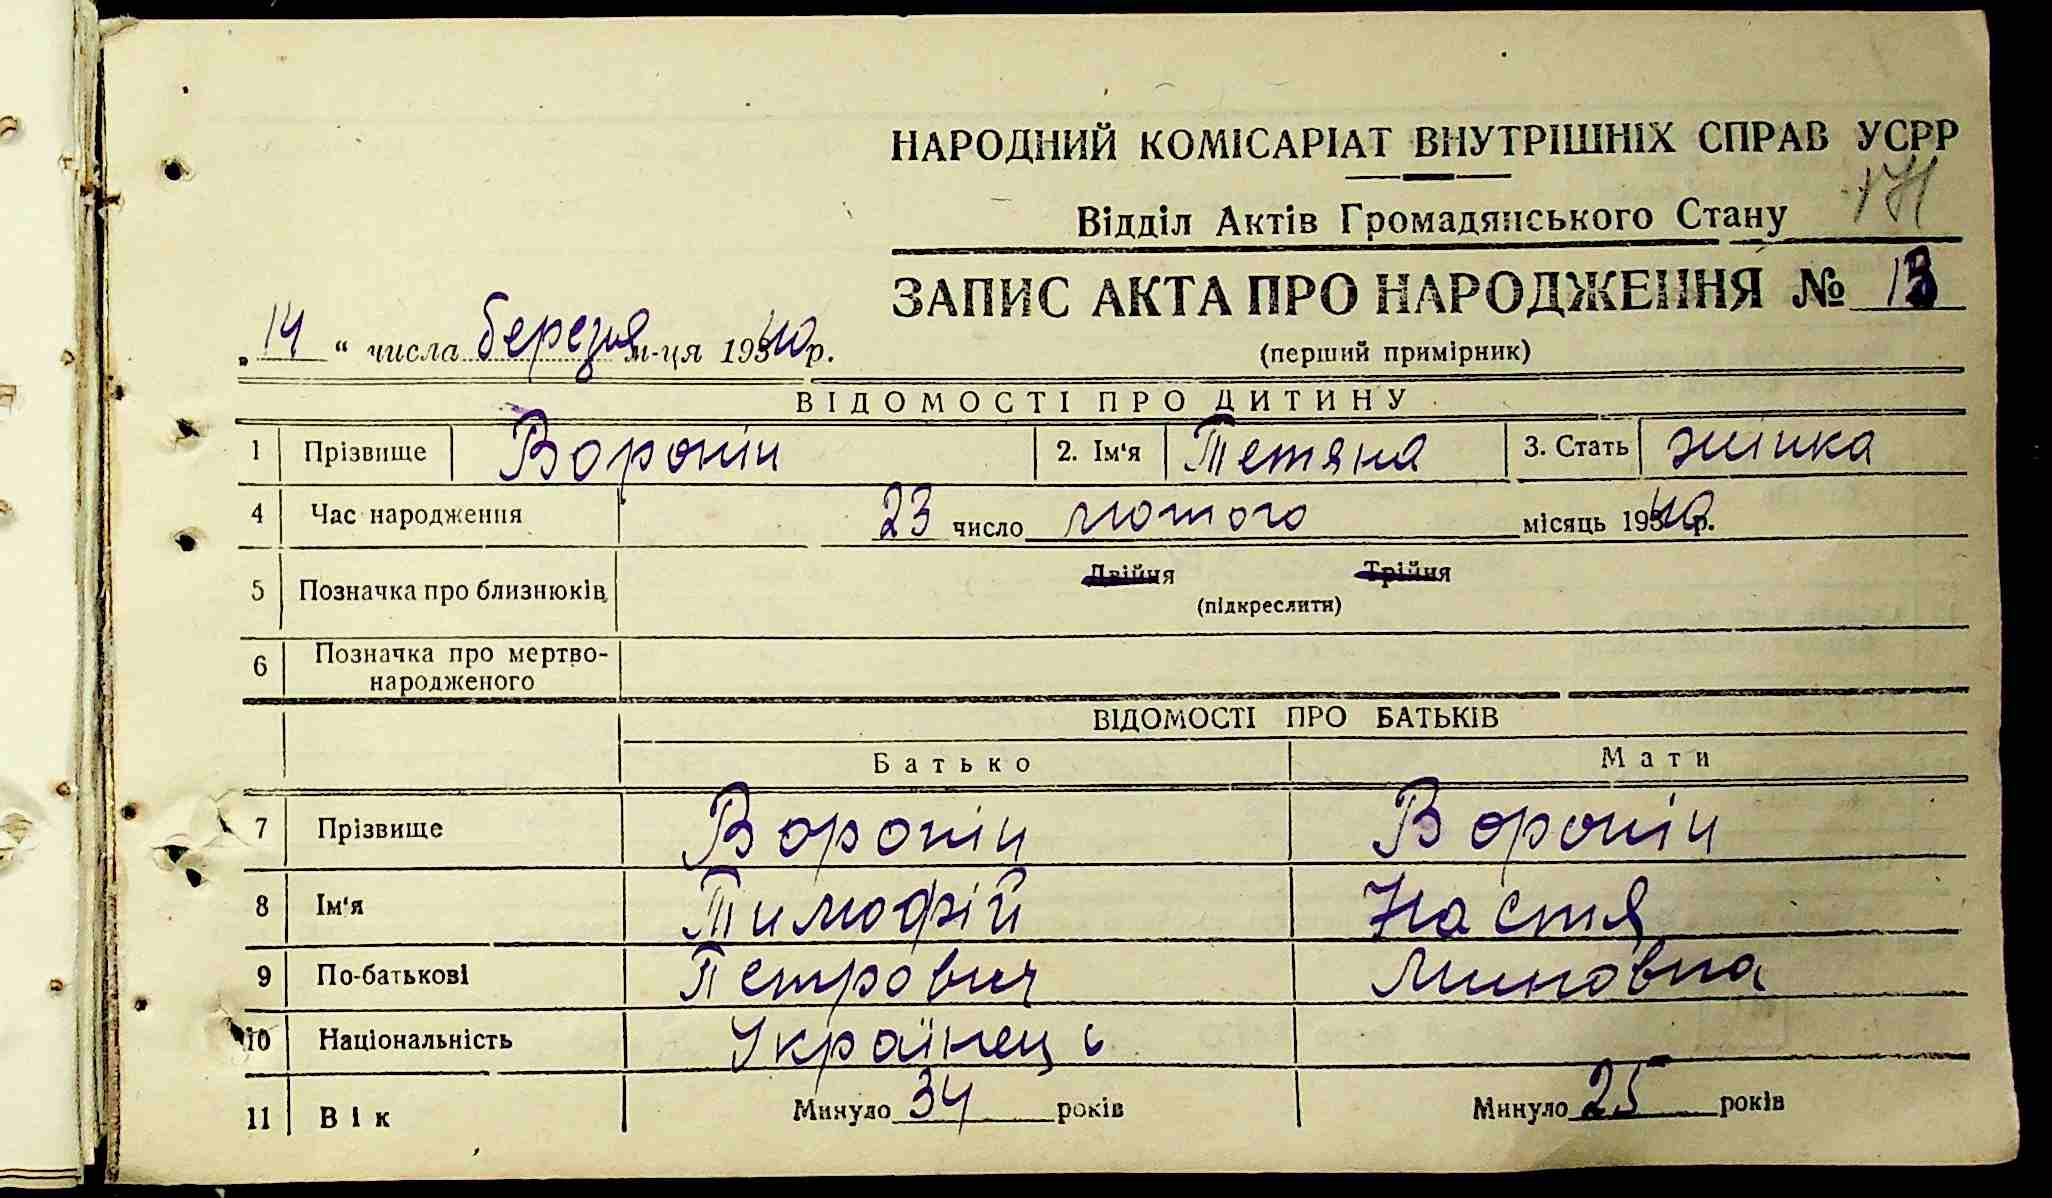 НАРОДНИЙ КОМІСАРІАТ ВНУТРІШНІХ СПРАВ УСРР
171
Відділ Актів Громадянського Стану
ЗАПИС АКТА ПРО НАРОДЖЕННЯ № 13
„14“ числа березня м-ця 1940 р.
(перший примірник)
ВІДОМОСТІ ПРО ДИТИНУ
1 Прізвище Воронін 2. Ім'я Тетяна 3. Стать жінка
4 Час народження 23 число лютого місяць 1940 р.
5 Позначка про близнюків Двійня Трійня
(підкреслити)
6 Позначка про мертво-
народженого
ВІДОМОСТІ ПРО БАТЬКІВ
Батько Мати
7 Прізвище Воронін Воронін
8 Ім'я Тимофій Настя
9 По-батькові Петрович Миновна
10 Національність Українець
11 Вік Минуло 34 років Минуло 25 років